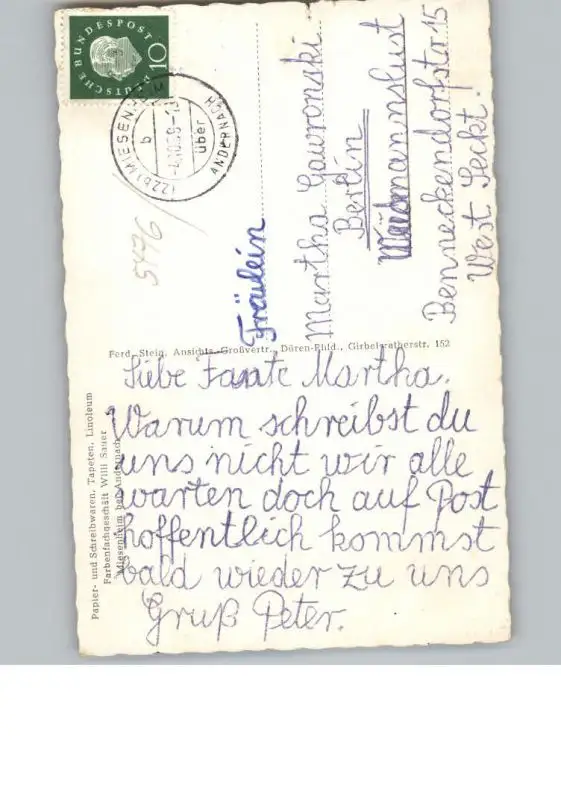 DEUTSCHE BUNDESPOST
10
(22b) MIESENHEIM
über
ANDERNACH
b
5476
Fräulein
Martha Gawronski.
Berlin
Waidmannslust
Benneckendorfstr 15
West Seckt.
Ferd. Steig, Ansichts-Großvertr., Düren-Rhld., Girbelsratherstr. 152
Papier- und Schreibwaren, Tapeten, Linoleum
Farbenfachgeschäft Willi Sauer
Miesenheim bei Andernach
Liebe Tante Martha.
Warum schreibst du
uns nicht wir alle
warten doch auf Post
hoffentlich kommst
bald wieder zu uns
Gruß Peter.